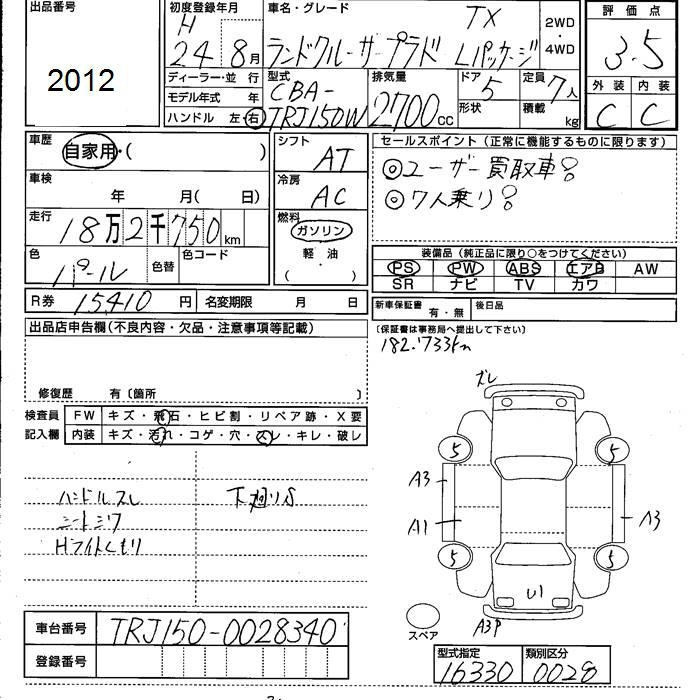 出品番号
2012
初度登録年月
H
24 8月
車名・グレード
TX
ランドクルーザープラド Lパッケージ
2WD
・
4WD
評価点
3.5
外装 内装
C C
ディーラー・並行
モデル年式 年
ハンドル 左・右
型式
CBA-
TRJ150W
排気量
2700cc
ドア 5
形状
定員 7人
積載 kg
車歴
自家用・( )
車検
年 月( 日)
走行
18万2千750km
色
パール
色替
色コード
シフト
AT
冷房
AC
燃料
ガソリン
軽・油
( )
セールスポイント(正常に機能するものに限ります)
◎ユーザー買取車
◎7人乗り
装備品(純正品に限り○をつけてください)
PS PW ABS エアB AW
SR ナビ TV カワ
R券 15410円
名変期限 月 日
新車保証書 有・無
後日品
(保証書は事務局へ提出して下さい)
182.733km
出品店申告欄(不良内容・欠品・注意事項等記載)
修復歴 有〔箇所 〕
検査員
記入欄
FW キズ・飛石・ヒビ割・リペア跡・X要
内装 キズ・汚れ・コゲ・穴・スレ・キレ・破レ
ハンドルスレ
シートシワ
Hライトくもり
下廻りS
ズレ
5 5
A3
A1
A3
5 5
U1
A3P
スペア
車台番号 TRJ150-0028340
登録番号
型式指定 類別区分
16330 0028